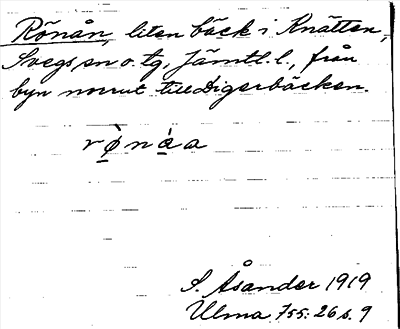 Rönån, liten bäck i Knätten,
Svegs sn o. tg, Jämtl. l., från
byn norrut till Digerbäcken.
rø̀náa
S. Åsander 1919
Ulma 755:26 s. 9